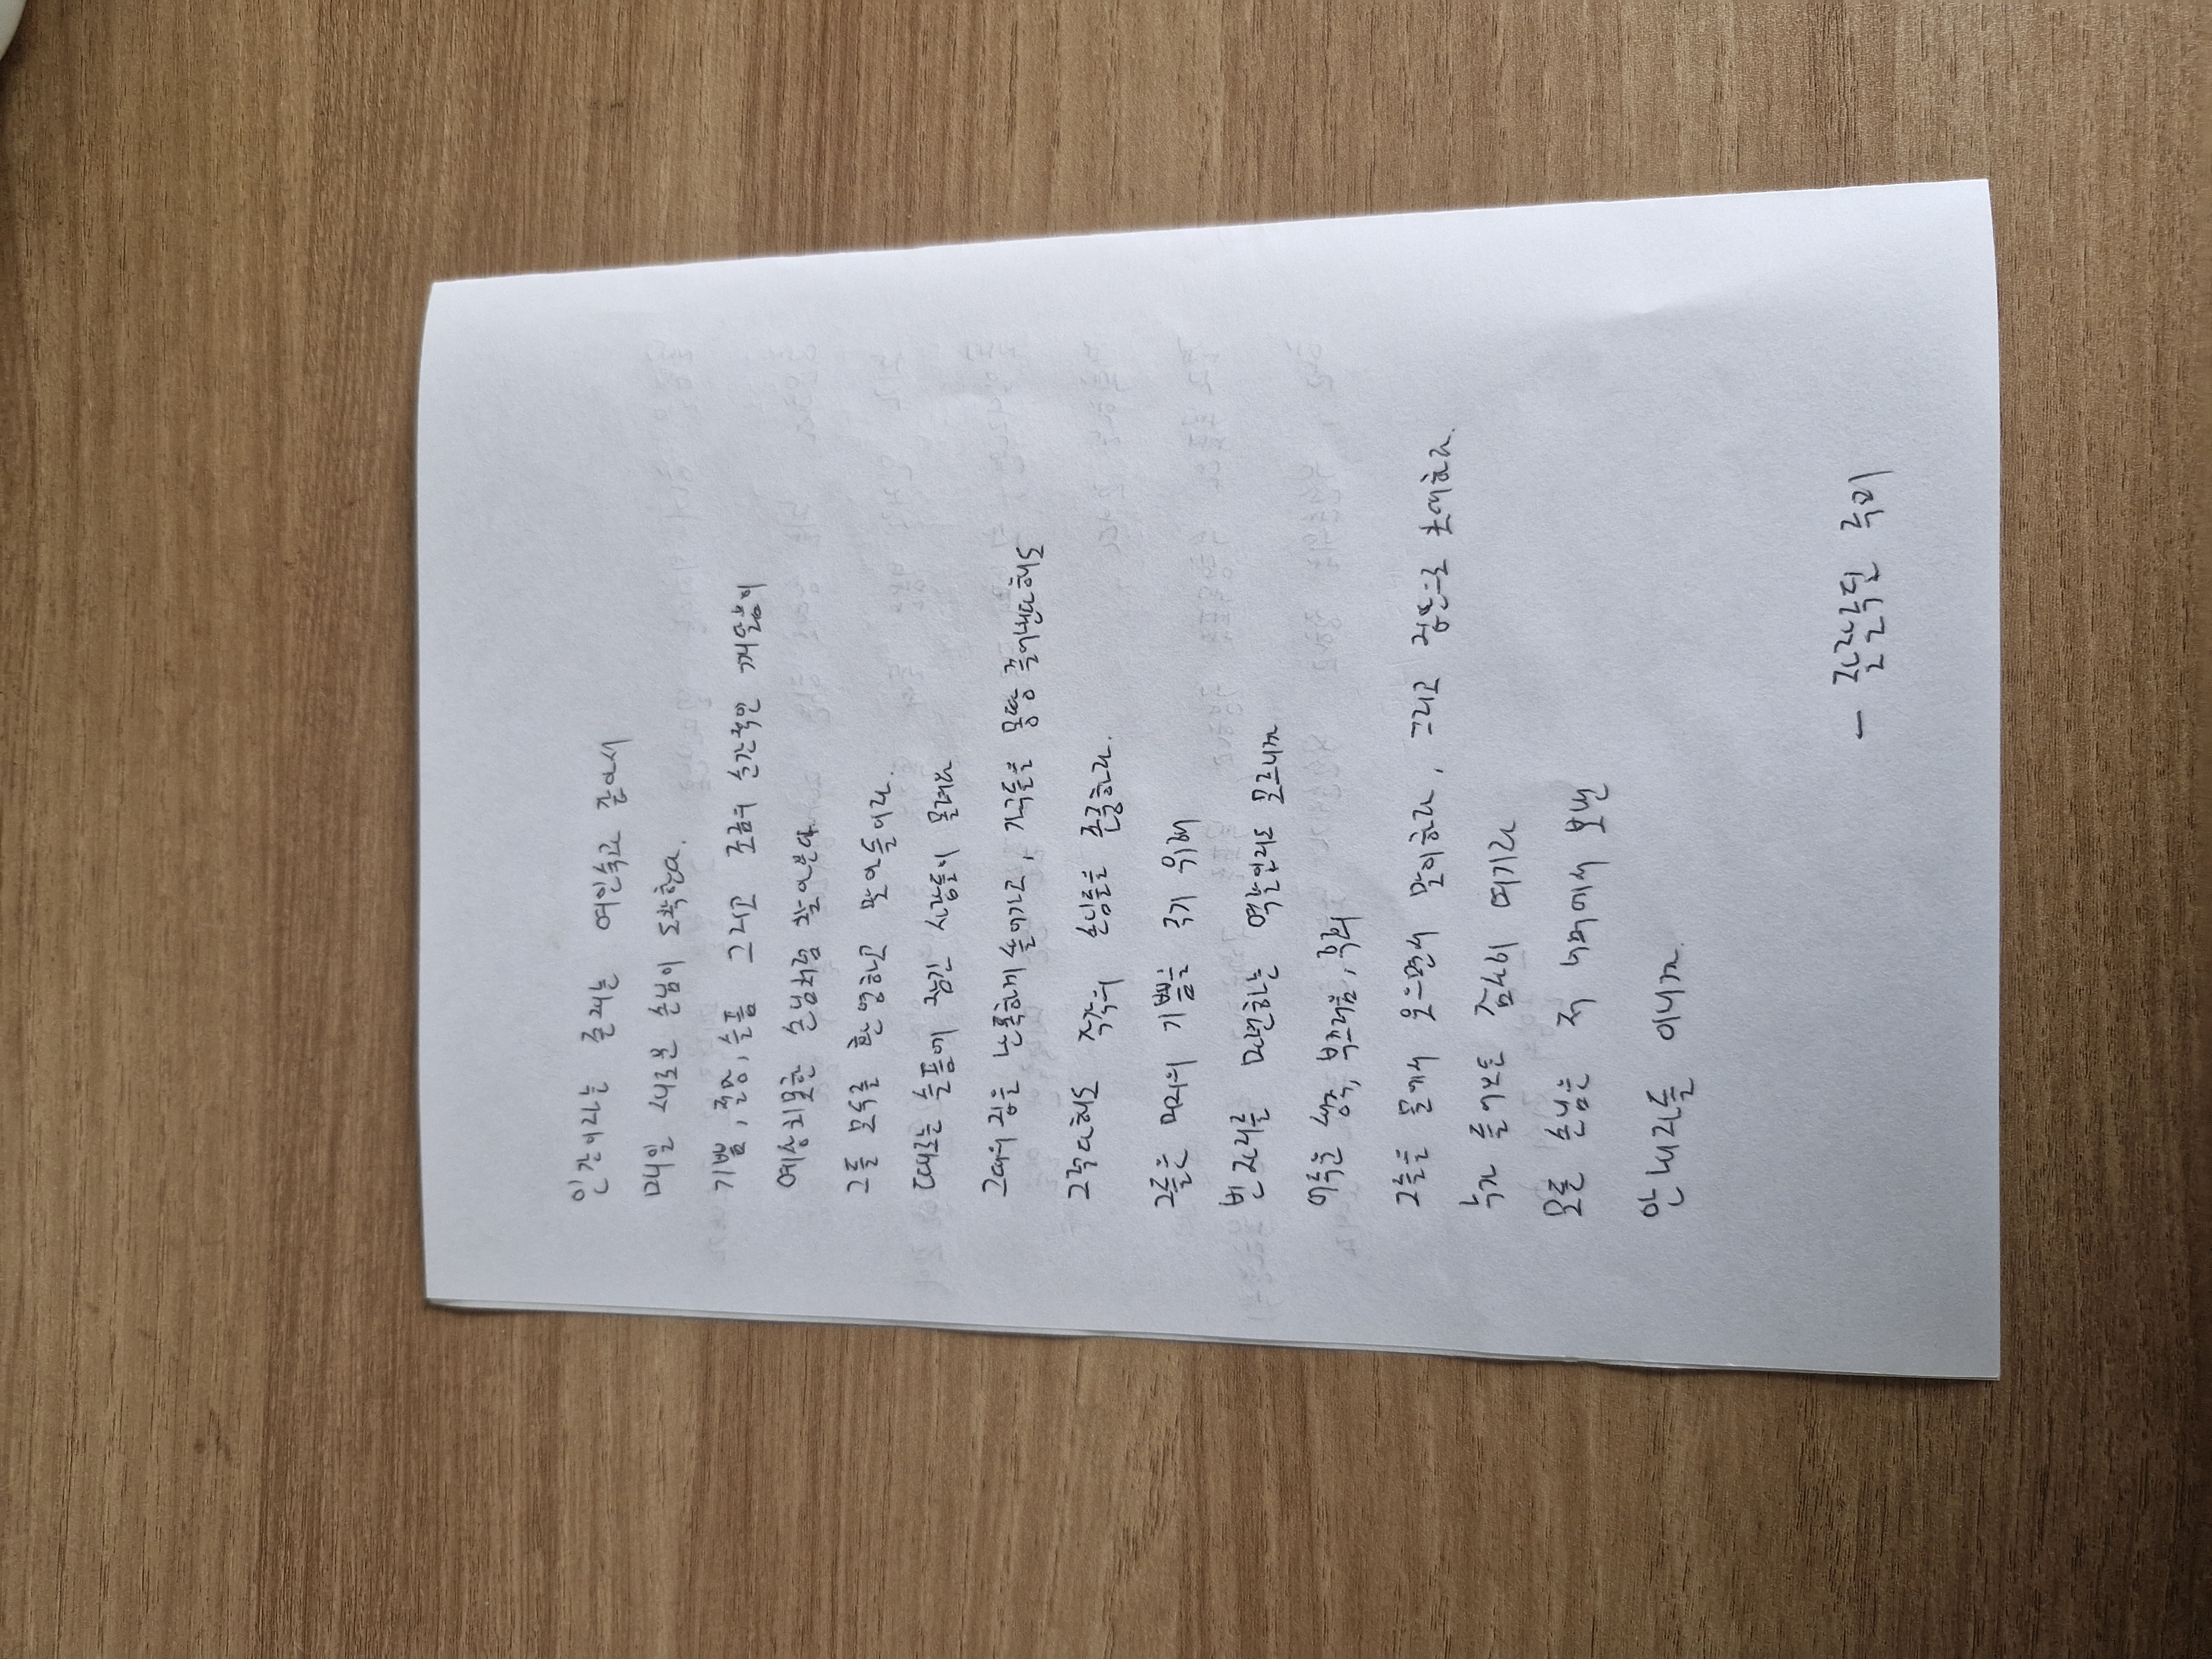 인간이라는 존재는 여인숙과 같아서
매일 새로운 손님이 도착한다.
기쁨, 절망, 슬픔 그리고 조금의 순간적인 깨달음이
예상치 못한 손님처럼 찾아온다.
그들 모두를 환영하고 맞아들이라.
때로는 슬픔에 잠긴 사람들이 몰려와
그대의 집을 난폭하게 쓸어가고, 가구들을 몽땅 쓸어낸다해도
그렇다해도 각각의 손님을 존중하라.
그들은 미래의 기쁨을 주기 위해
빈 자리를 마련하는 역할인지도 모르니까
어두운 생각, 부끄러움, 후회
그들을 문에서 웃으면서 맞이하라, 그리고 집안으로 초대하라.
누가 들어오든 감사히 여기라
모든 손님은 저 너머에서 보낸
안내자들 이니까.
- 잘랄루딘 루미